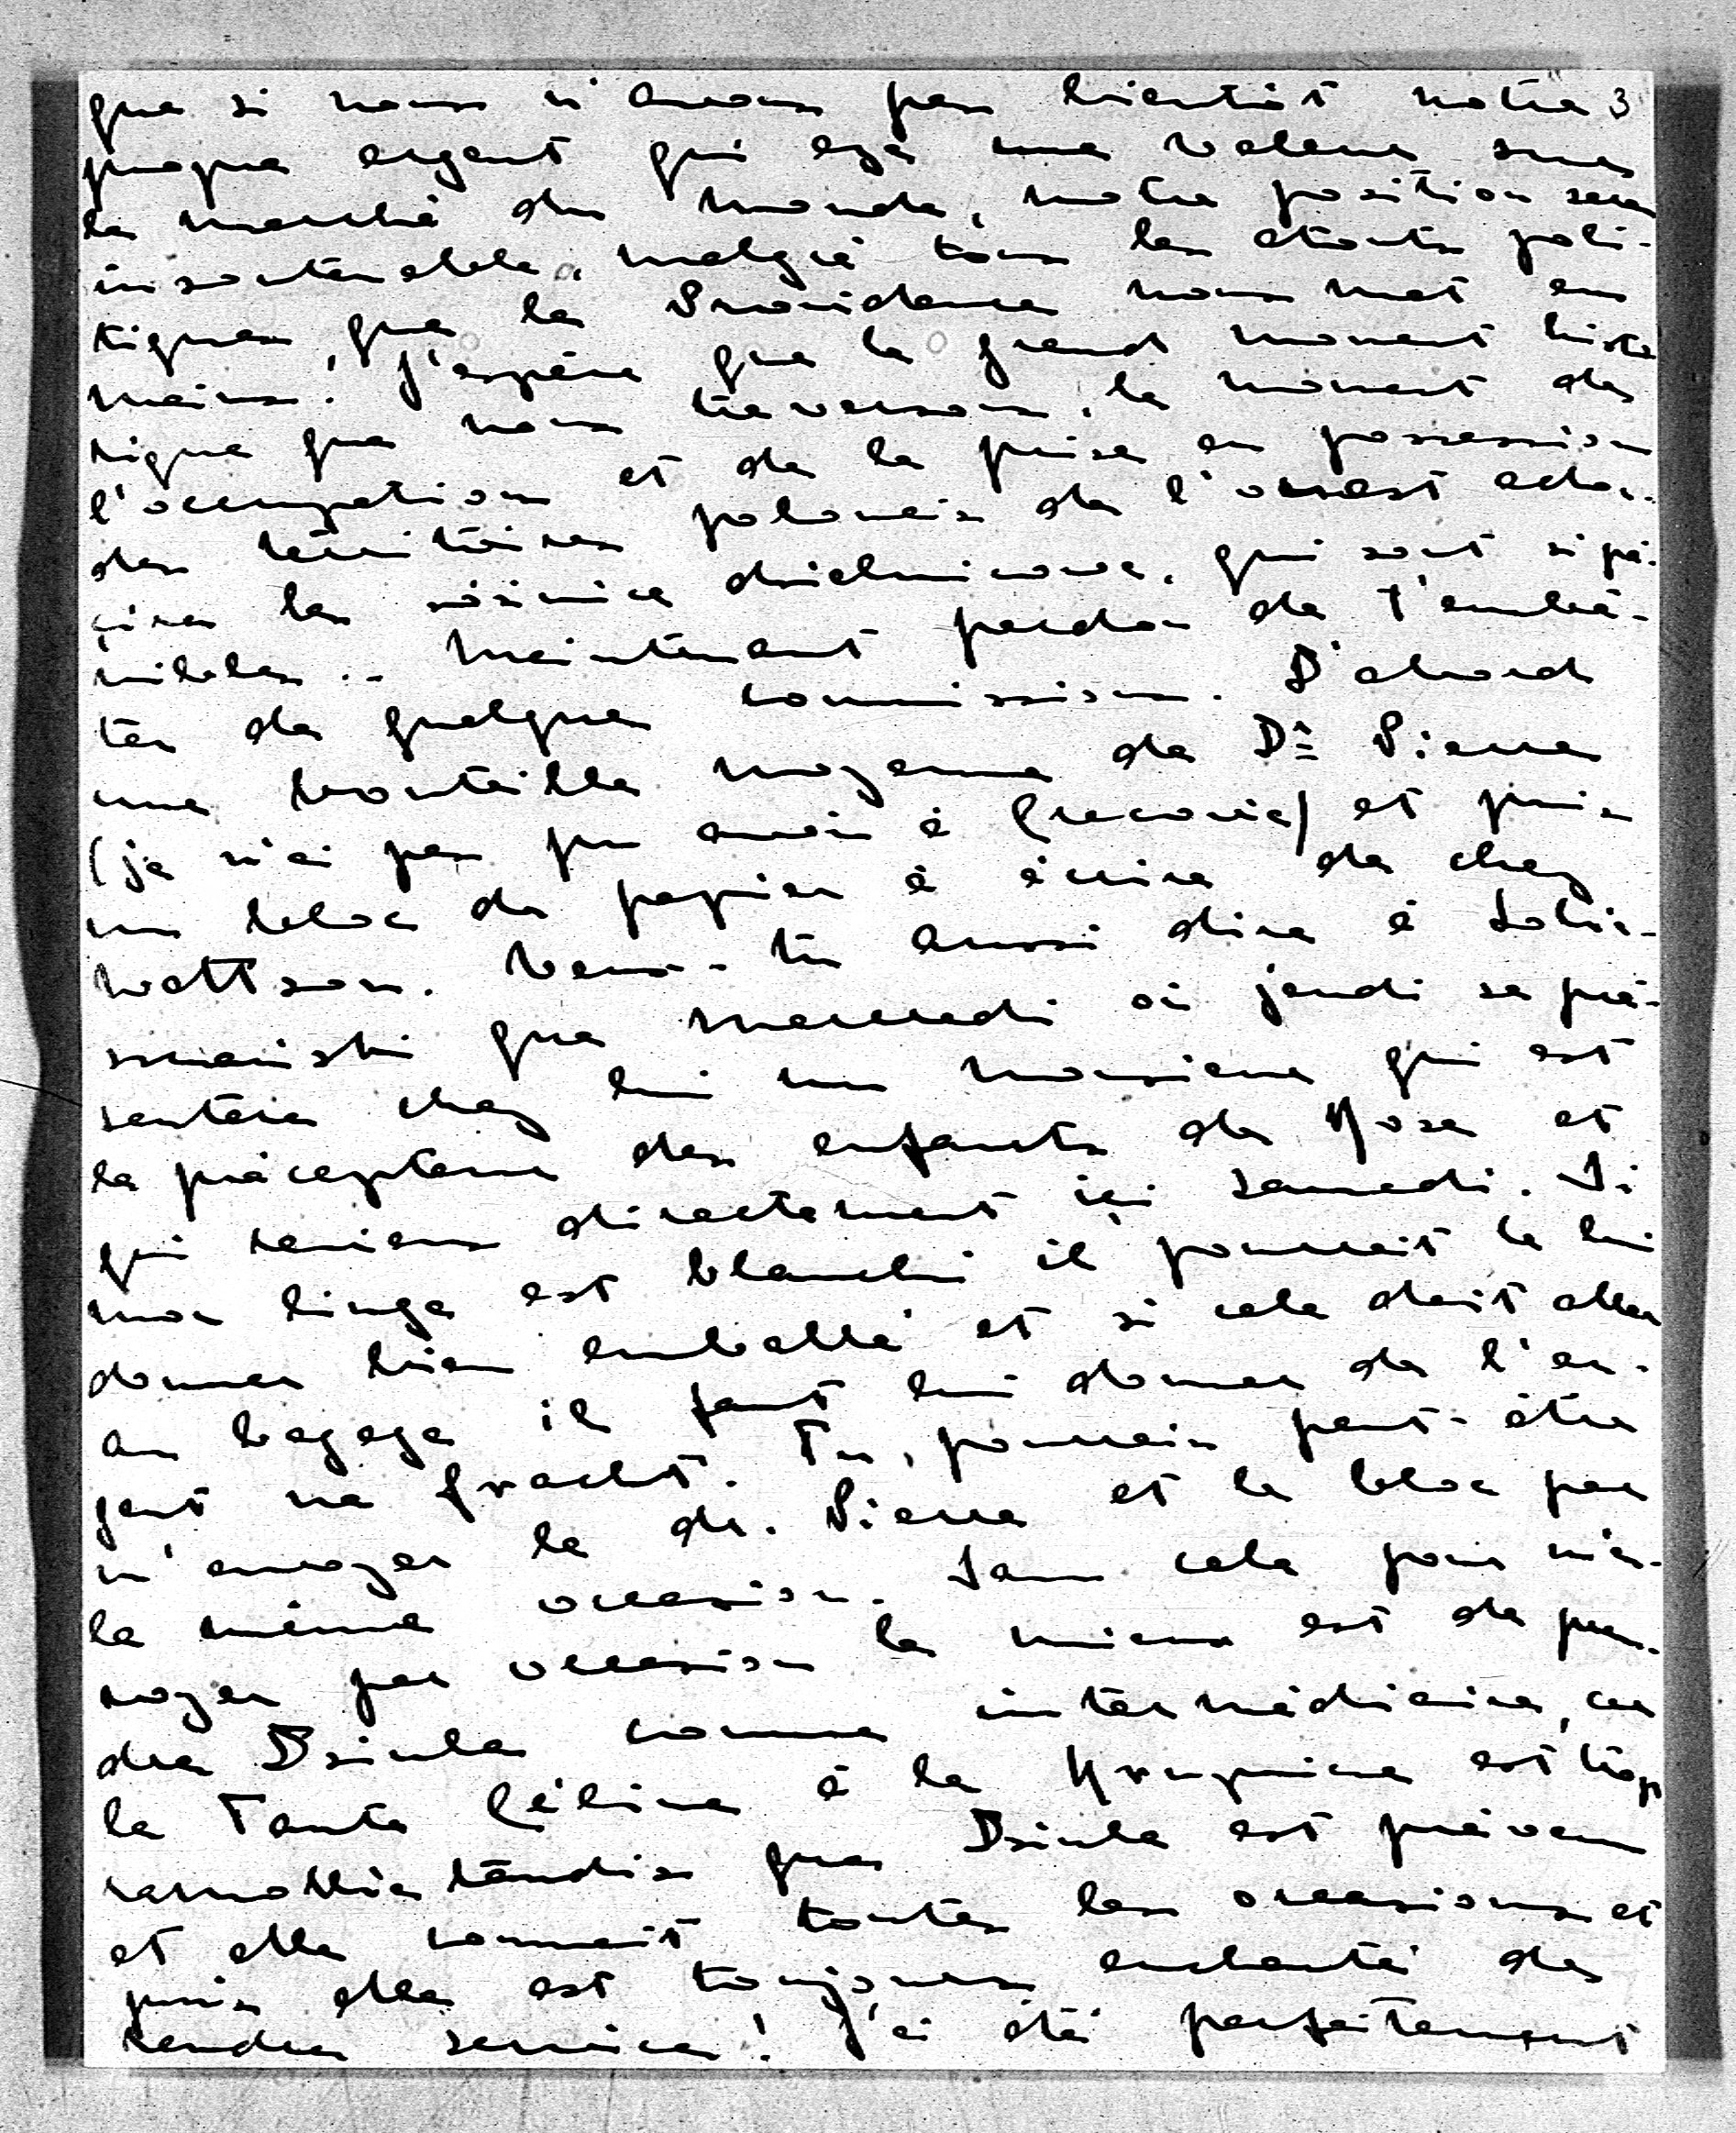 que si nous n'avons pas bientôt notre 3
propre argent qui aye une valeur sur
le marché du monde, notre position sera
insoutenable, malgré tous les atouts poli-
tiques, que la Providence nous met en
mains! J'espère que le grand moment histo
rique que nous traversons, le moment de
l'occupation et de la prise en possession
des territoires polonais de l'ouest adou-
cira les różnice dzielnicowe, qui sont si pé-
nibles.. Maintenant pardon de t'embê-
ter de quelques commissions. D'abord
une bouteille moyenne de Dr Pierre
(je n'ai pas pu avoir à Cracovie) et puis
un bloc de papier à écrire de chez
Wattson. Veux-tu aussi dire à Dobra-
que mercredi ou jeudi se pré-
sentera chez lui un monsieur qui est
le précepteur des enfants de Róża et
qui reviens directement ici samedi. Si
mon linge est blanchi il pourrait le lui
donner bien emballé et si cela doit aller
au bagage il faut lui donner de l'ar-
gent na fracht. Tu pourrais peut-être
m'envoyer le dr. Pierre et le bloc par
la même occasion. Sans cela pour m'en-
voyer par occasion le mieux est de pren-
dre Dziula comme intermédiaire, car
la Tante Céline à la Krupnicza est trop
ramollie tandis que Dziula est prévenu
et elle connait toutes les occasions et
puis elle est toujours enchanté de
rendre service! J'ai été parfaitement